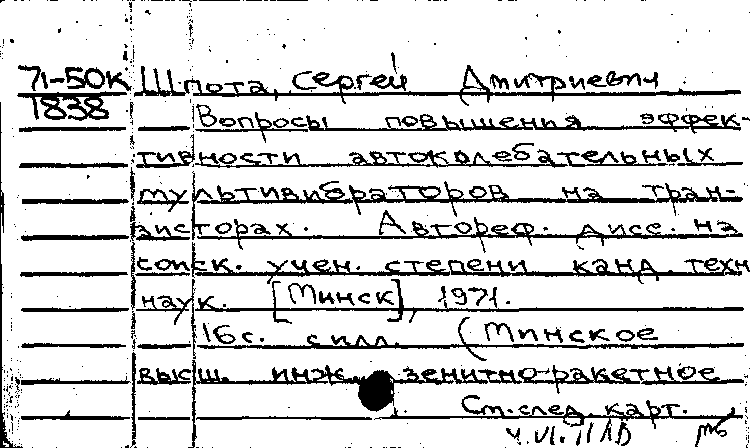 71-50к Шпота, Сергей Дмитриевич.
1838 Вопросы повышения эффек-
тивности автоколебательных
мультивибраторов на тран-
зисторах. Автореф. дисс. на
соиск. учен. степени канд. техн
наук. [Минск], 1971.
16с. с илл. (Минское
высш. инж. зенитно-ракетное
См. след. карт.